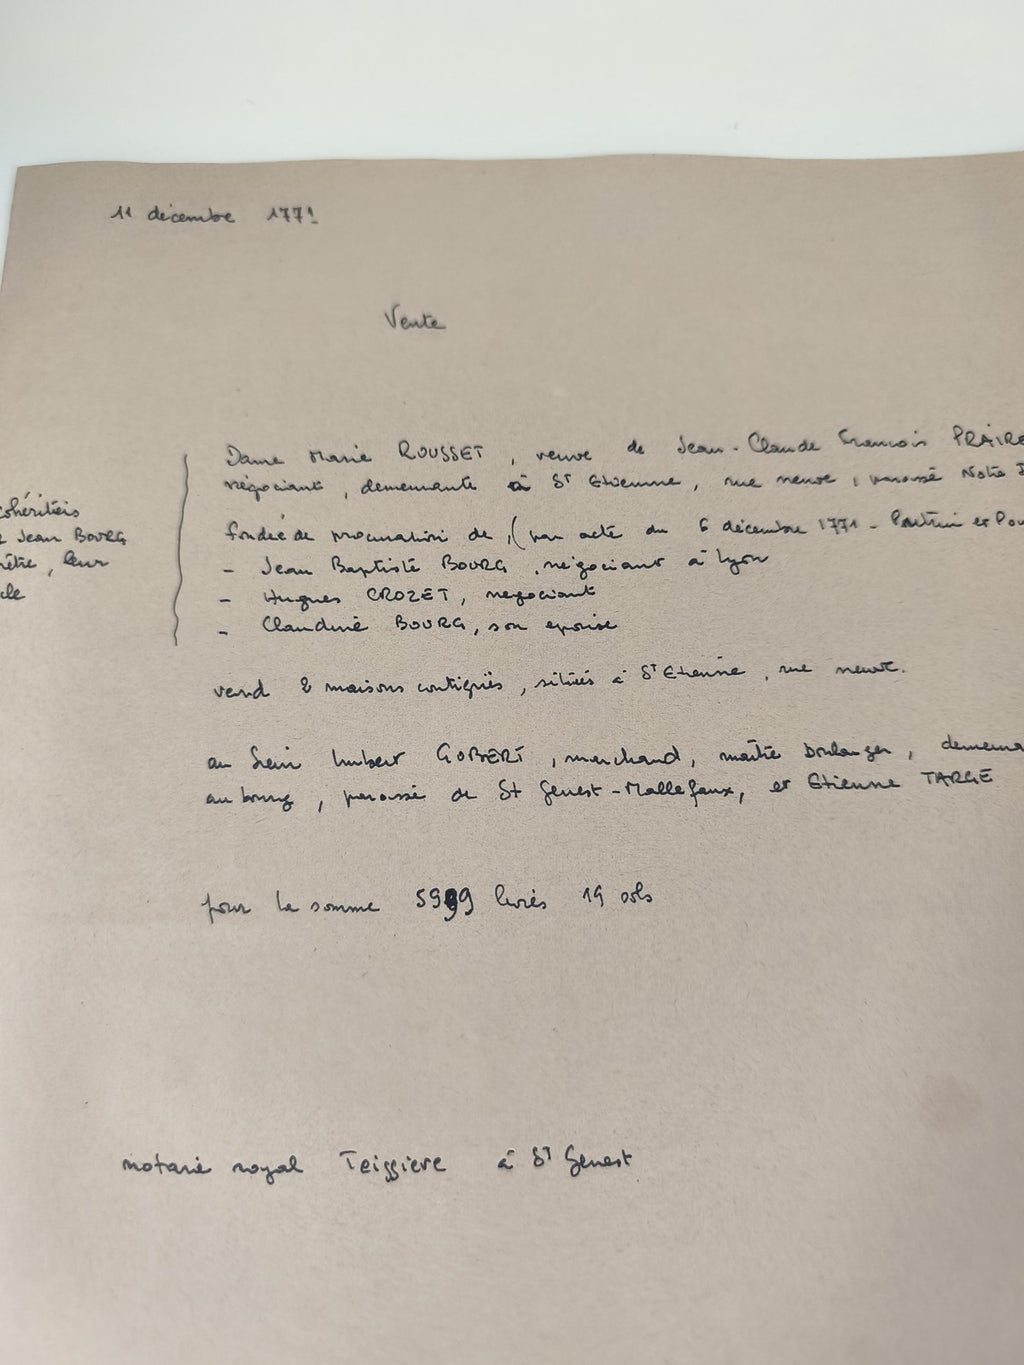 11 décembre 1771
Vente
Dame Marie ROUSSET, veuve de Jean-Claude François PRAIRE
négociant, demeurante à St Etienne, rue neuve, paroisse Notre D
cohéritiers
fondée de procuration de, (par acte du 6 décembre 1771 - et
Jean BOURG
- Jean Baptiste BOURG, négociant à Lyon
prêtre, leur
- Hugues CROZET, négociant
cle
- Claudine BOURG, son épouse
vend 2 maisons contiguës, situées à St Etienne, rue neuve.
au Sieur Imbert GOBERT, marchand, maître boulanger, demeura
au bourg, paroisse de St Genest-Mallefaux, et Etienne TARGE
pour la somme 5999 livres 19 sols
notaire royal Teissiere à St Genest